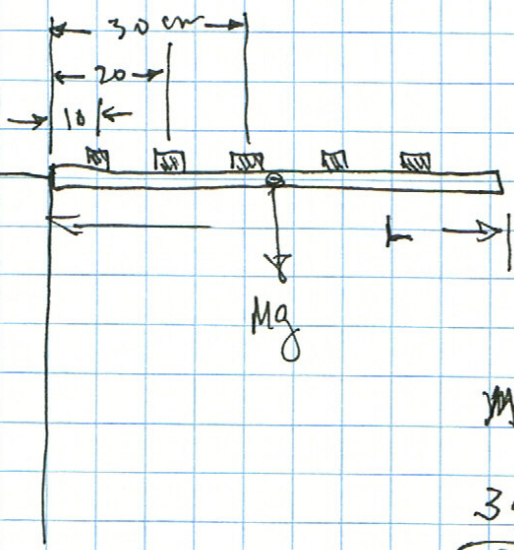 30 cm
20
10
L
Mg
M
3